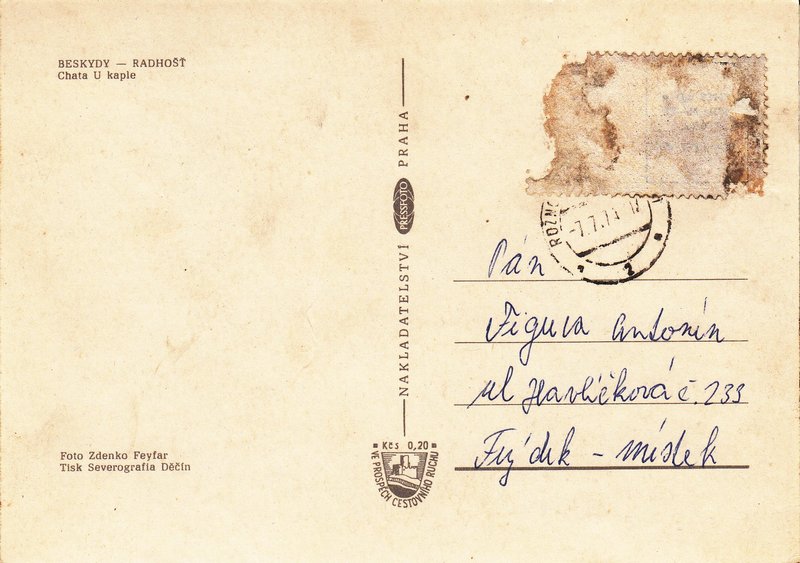 BESKYDY — RADHOŠŤ
Chata U kaple
NAKLADATELSTVÍ PRESSFOTO PRAHA
-7.7.
2
Pán
Figura Antonín
ul Havlíčková č. 233
Frýdek - místek
Foto Zdenko Feyfar
Tisk Severografia Děčín
Kčs 0,20
VE PROSPĚCH CESTOVNÍHO RUCHU